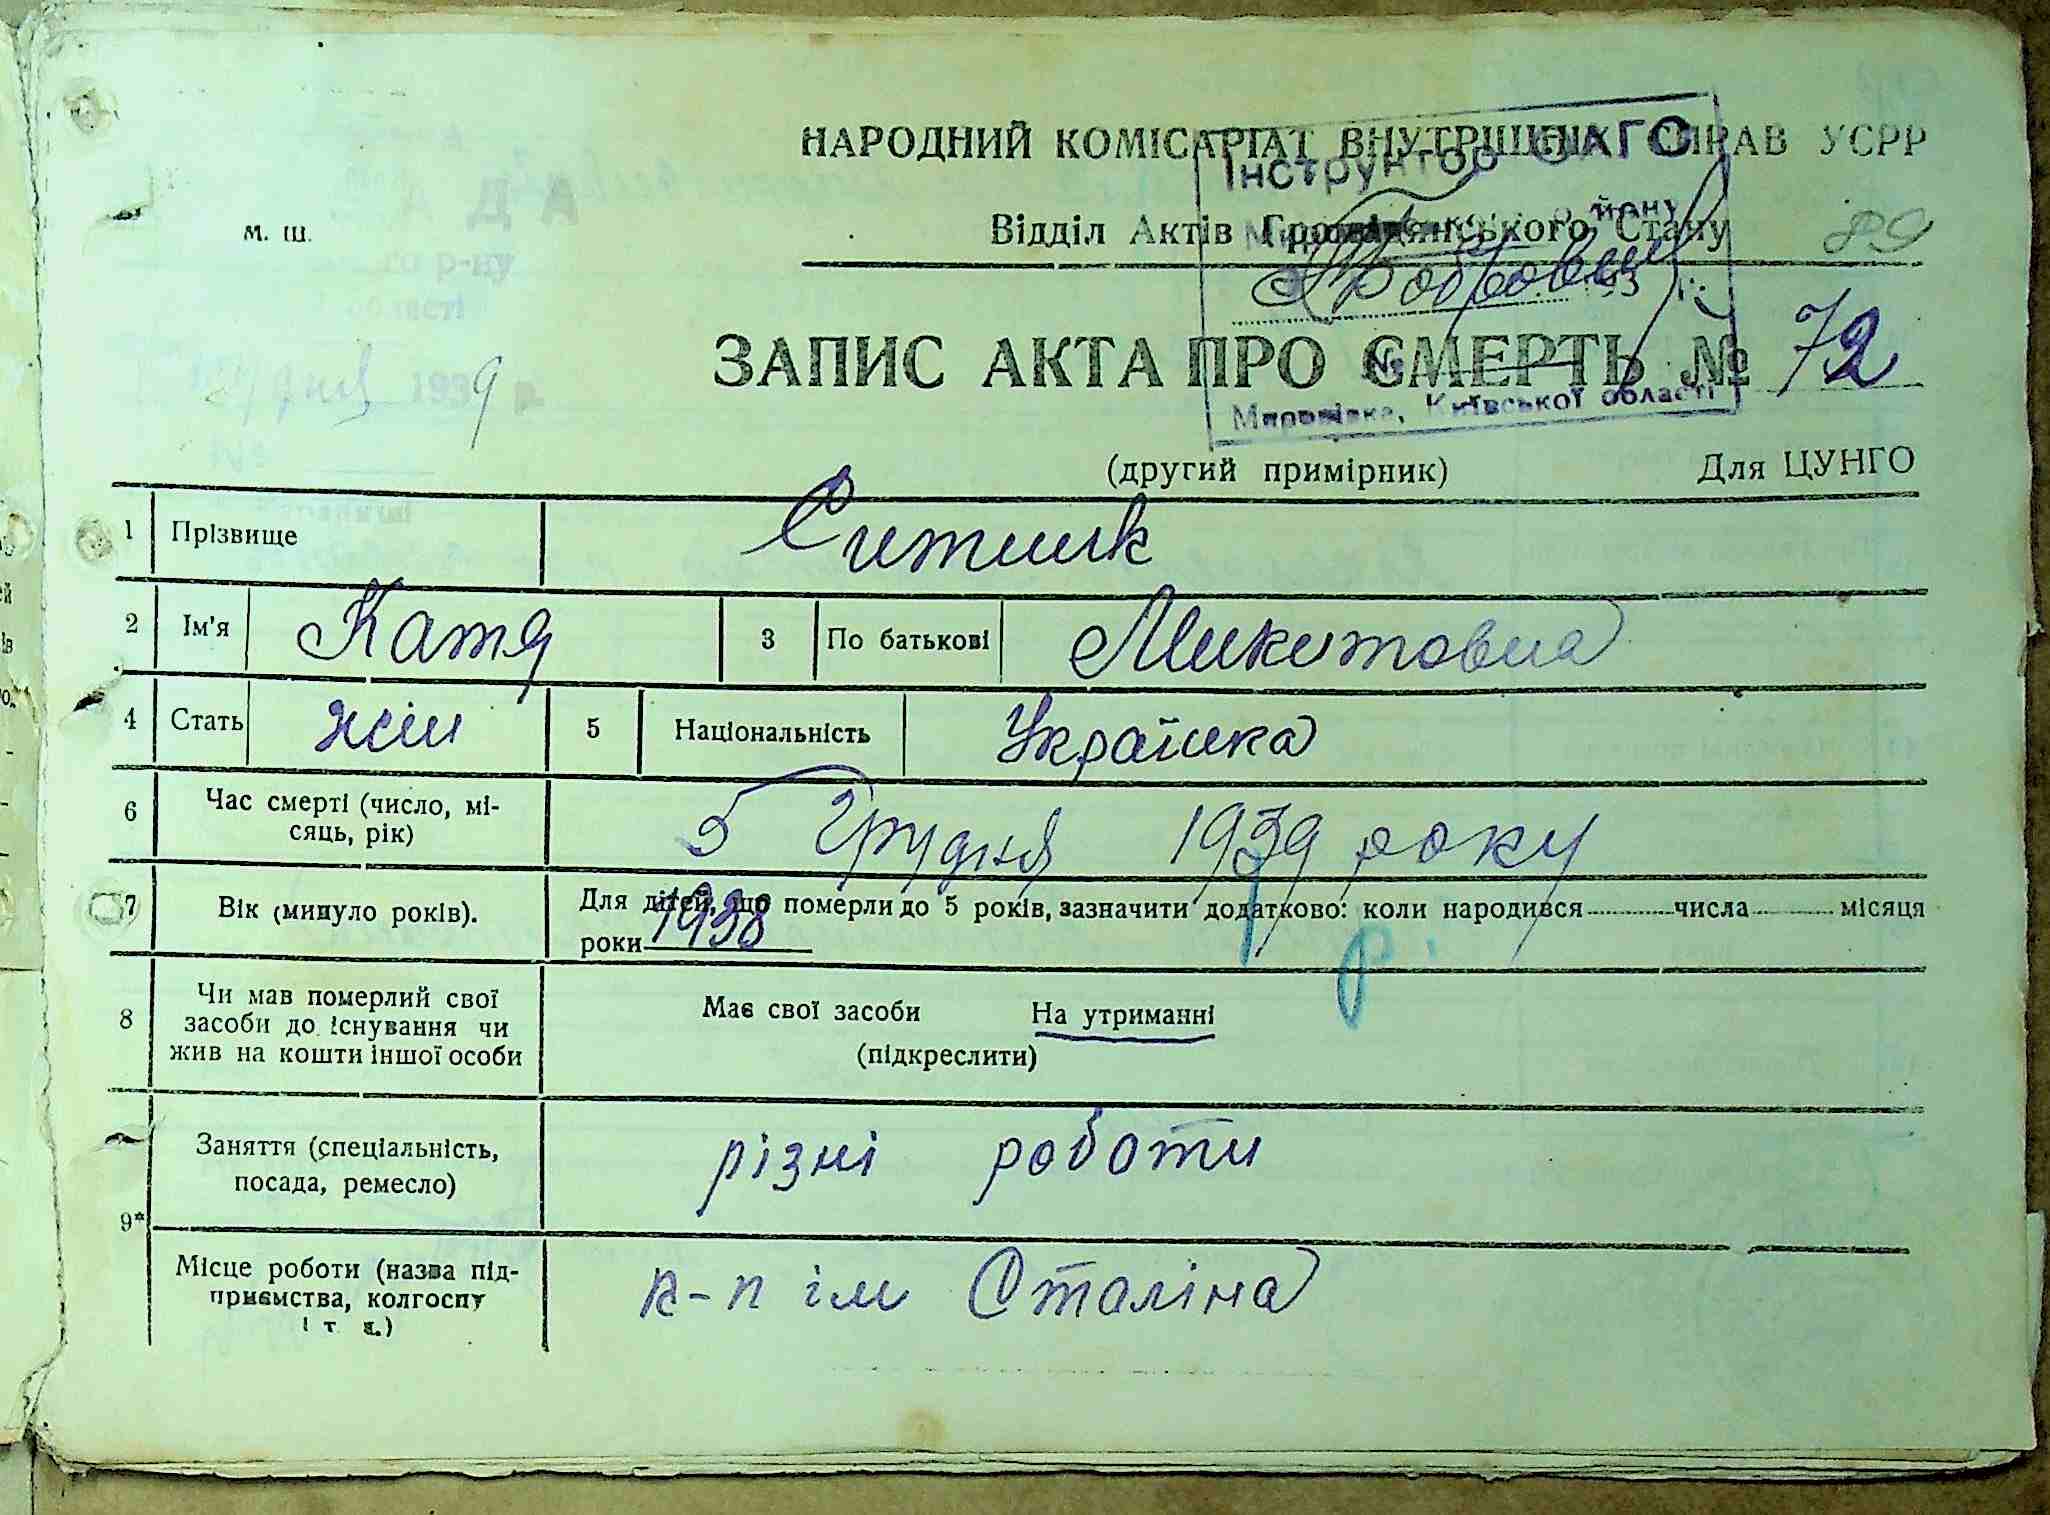 НАРОДНИЙ КОМІСАРІАТ ВНУТРІШНІХ СПРАВ УСРР
Інструктор ОАГС
м. ш.
Відділ Актів Громадянського Стану
89
району
193 р.
ЗАПИС АКТА ПРО СМЕРТЬ № 72
№
Миронівка, Київської області
(другий примірник) Для ЦУНГО
1 Прізвище Ситник
2 Ім'я Катя 3 По батькові Микитовна
4 Стать жін 5 Національність Українка
6 Час смерті (число, мі-
сяць, рік) 5 Грудня 1939 року
7 Вік (минуло років). Для дітей, що померли до 5 років, зазначити додатково: коли народився числа місяця
роки 1938
1 р.
8 Чи мав померлий свої
засоби до існування чи
жив на кошти іншої особи
Має свої засоби На утриманні
(підкреслити)
Заняття (спеціальність,
посада, ремесло) різні роботи
9*
Місце роботи (назва під-
приємства, колгоспу
і т д.) к-п ім Сталіна